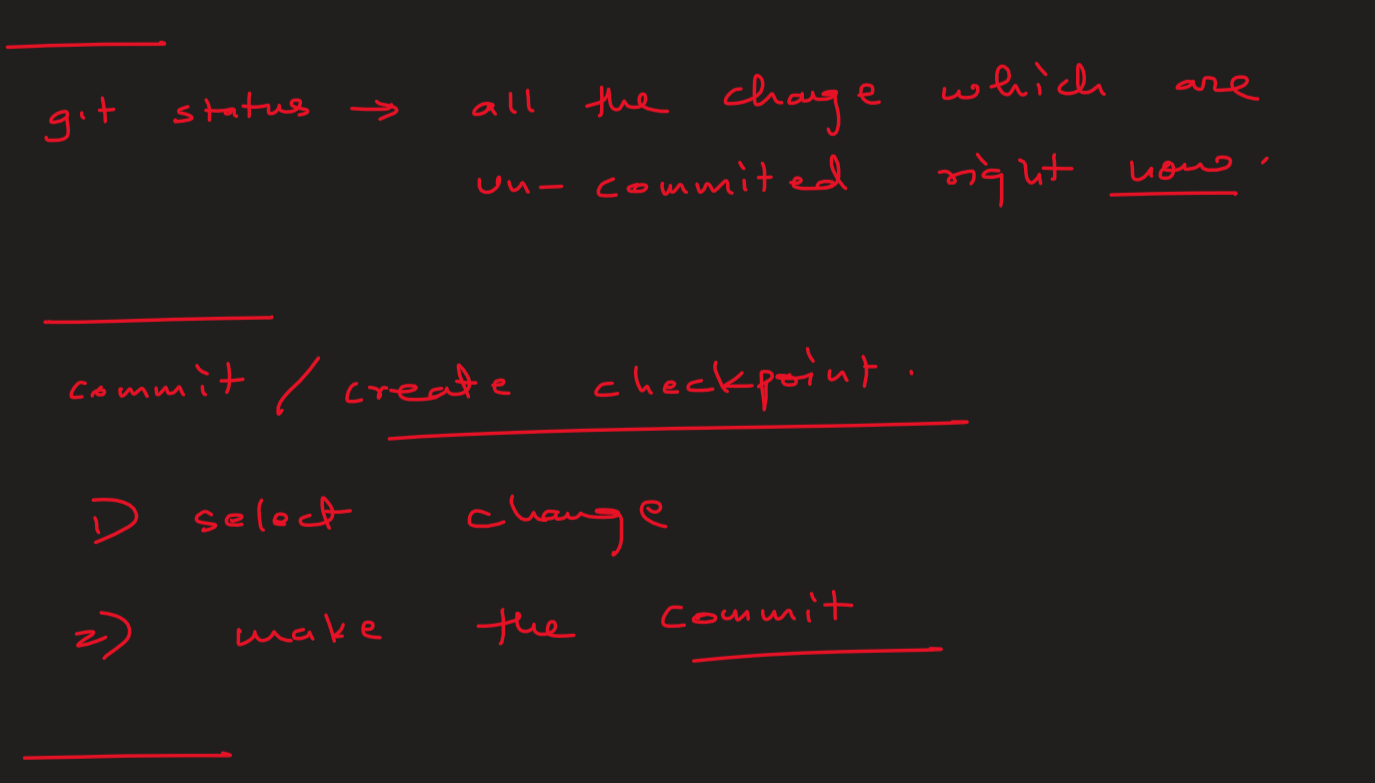 git status → all the change which are
un-commited right now.
commit / create checkpoint.
1) select change
2) make the commit